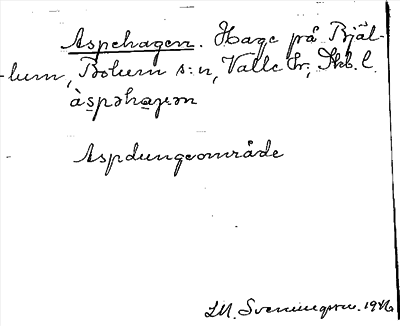 Aspehagen. Hage på Bjäl-
lum, Bolum s:n, Valle hr, Skb. l.
àspəhaɡən
Aspdungeområde
Svenningson. 1946